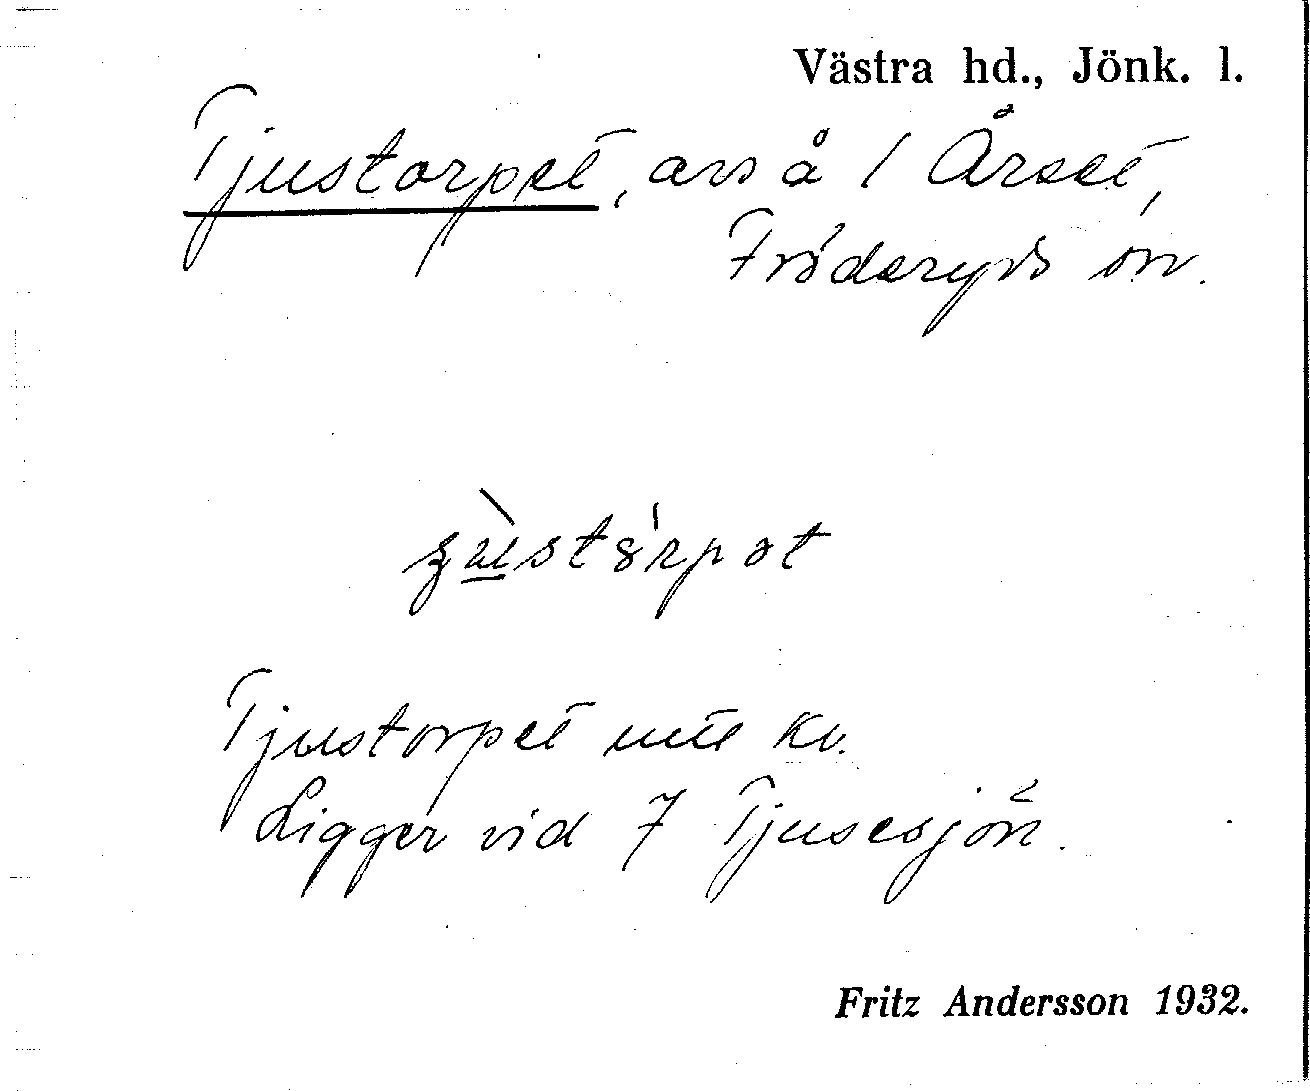 Västra hd., Jönk. l.
Tjustorpet, avs å 1 Årset,
Fröderyds sn.
Tjustorpet mtl kv.
Ligger vid 7 Tjusesjön.
Fritz Andersson 1932.